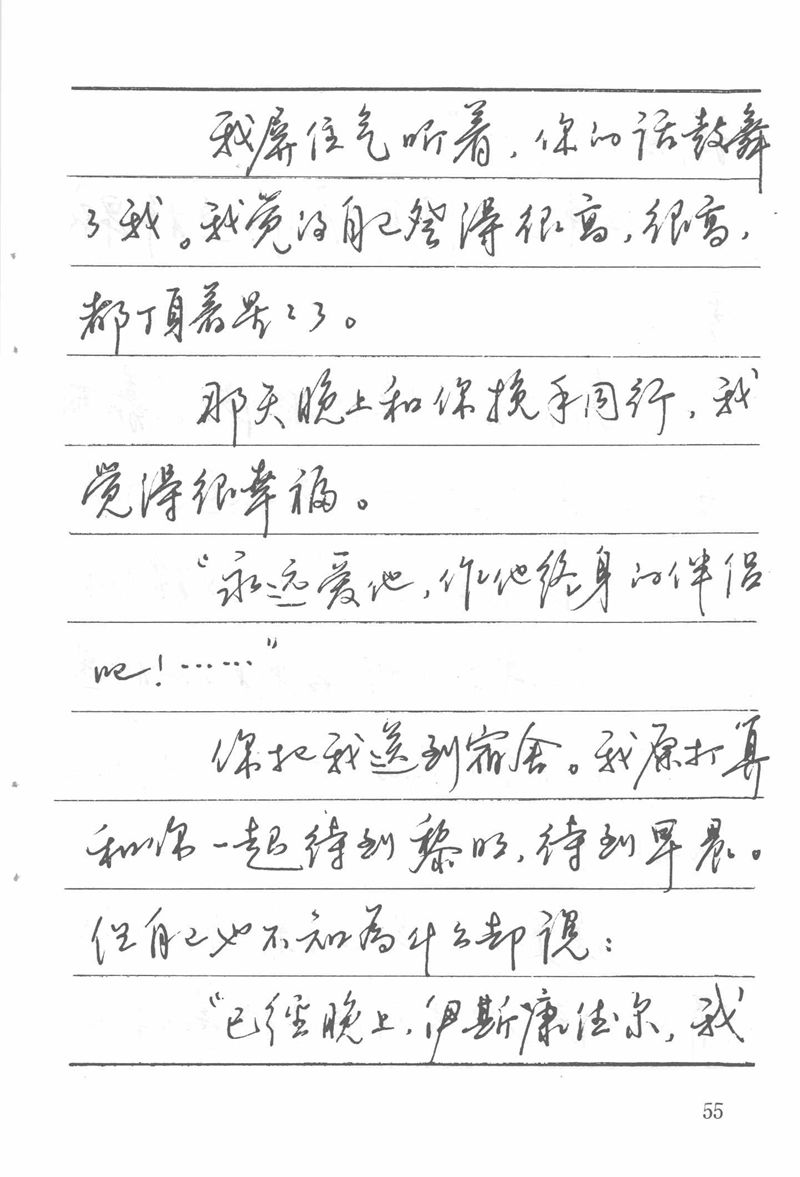 我屏住气听着，你的话鼓舞
了我。我觉得自己登得很高，很高，
都顶着星星了。
那天晚上和你挽手同行，我
觉得很幸福。
“永远爱他，作他终身的伴侣
吧！……”
你把我送到宿舍。我原打算
和你一起待到黎明，待到早晨。
但自己也不知为什么却说：
“已经晚上，伊斯康德尔，我
55